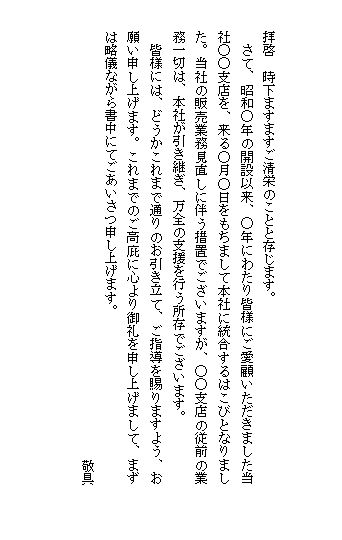 拝啓　時下ますますご清栄のことと存じます。
　さて、昭和〇年の開設以来、〇年にわたり皆様にご愛顧いただきました当
社〇〇支店を、来る〇月〇日をもちまして本社に統合するはこびとなりまし
た。当社の販売業務見直しに伴う措置でございますが、〇〇支店の従前の業
務一切は、本社が引き継ぎ、万全の支援を行う所存でございます。
　皆様には、どうかこれまで通りのお引き立て、ご指導を賜りますよう、お
願い申し上げます。これまでのご高庇に心より御礼を申し上げまして、まず
は略儀ながら書中にてごあいさつ申し上げます。
敬具